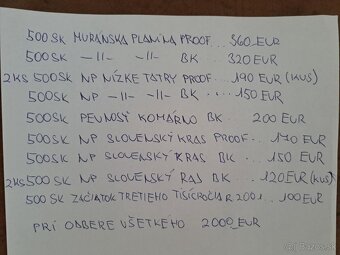 500 SK MURÁNSKA PLANINA PROOF... 360 EUR
500 SK —II— —II— BK ... 320 EUR
2KS 500 SK NP NÍZKE TATRY PROOF... 190 EUR (KUS)
500 SK NP —II— —II— BK .... 150 EUR
500 SK PEVNOSŤ KOMÁRNO BK .. 200 EUR
500 SK NP SLOVENSKÝ KRAS PROOF... 170 EUR
500 SK NP SLOVENSKÝ KRAS BK ... 150 EUR
2KS 500 SK NP SLOVENSKÝ RAJ BK ... 120 EUR (KUS)
500 SK ZAČIATOK TRETIEHO TISÍCROČIA R. 2001. 100 EUR
PRI ODBERE VŠETKÉHO 2000 EUR
© Bazos.sk